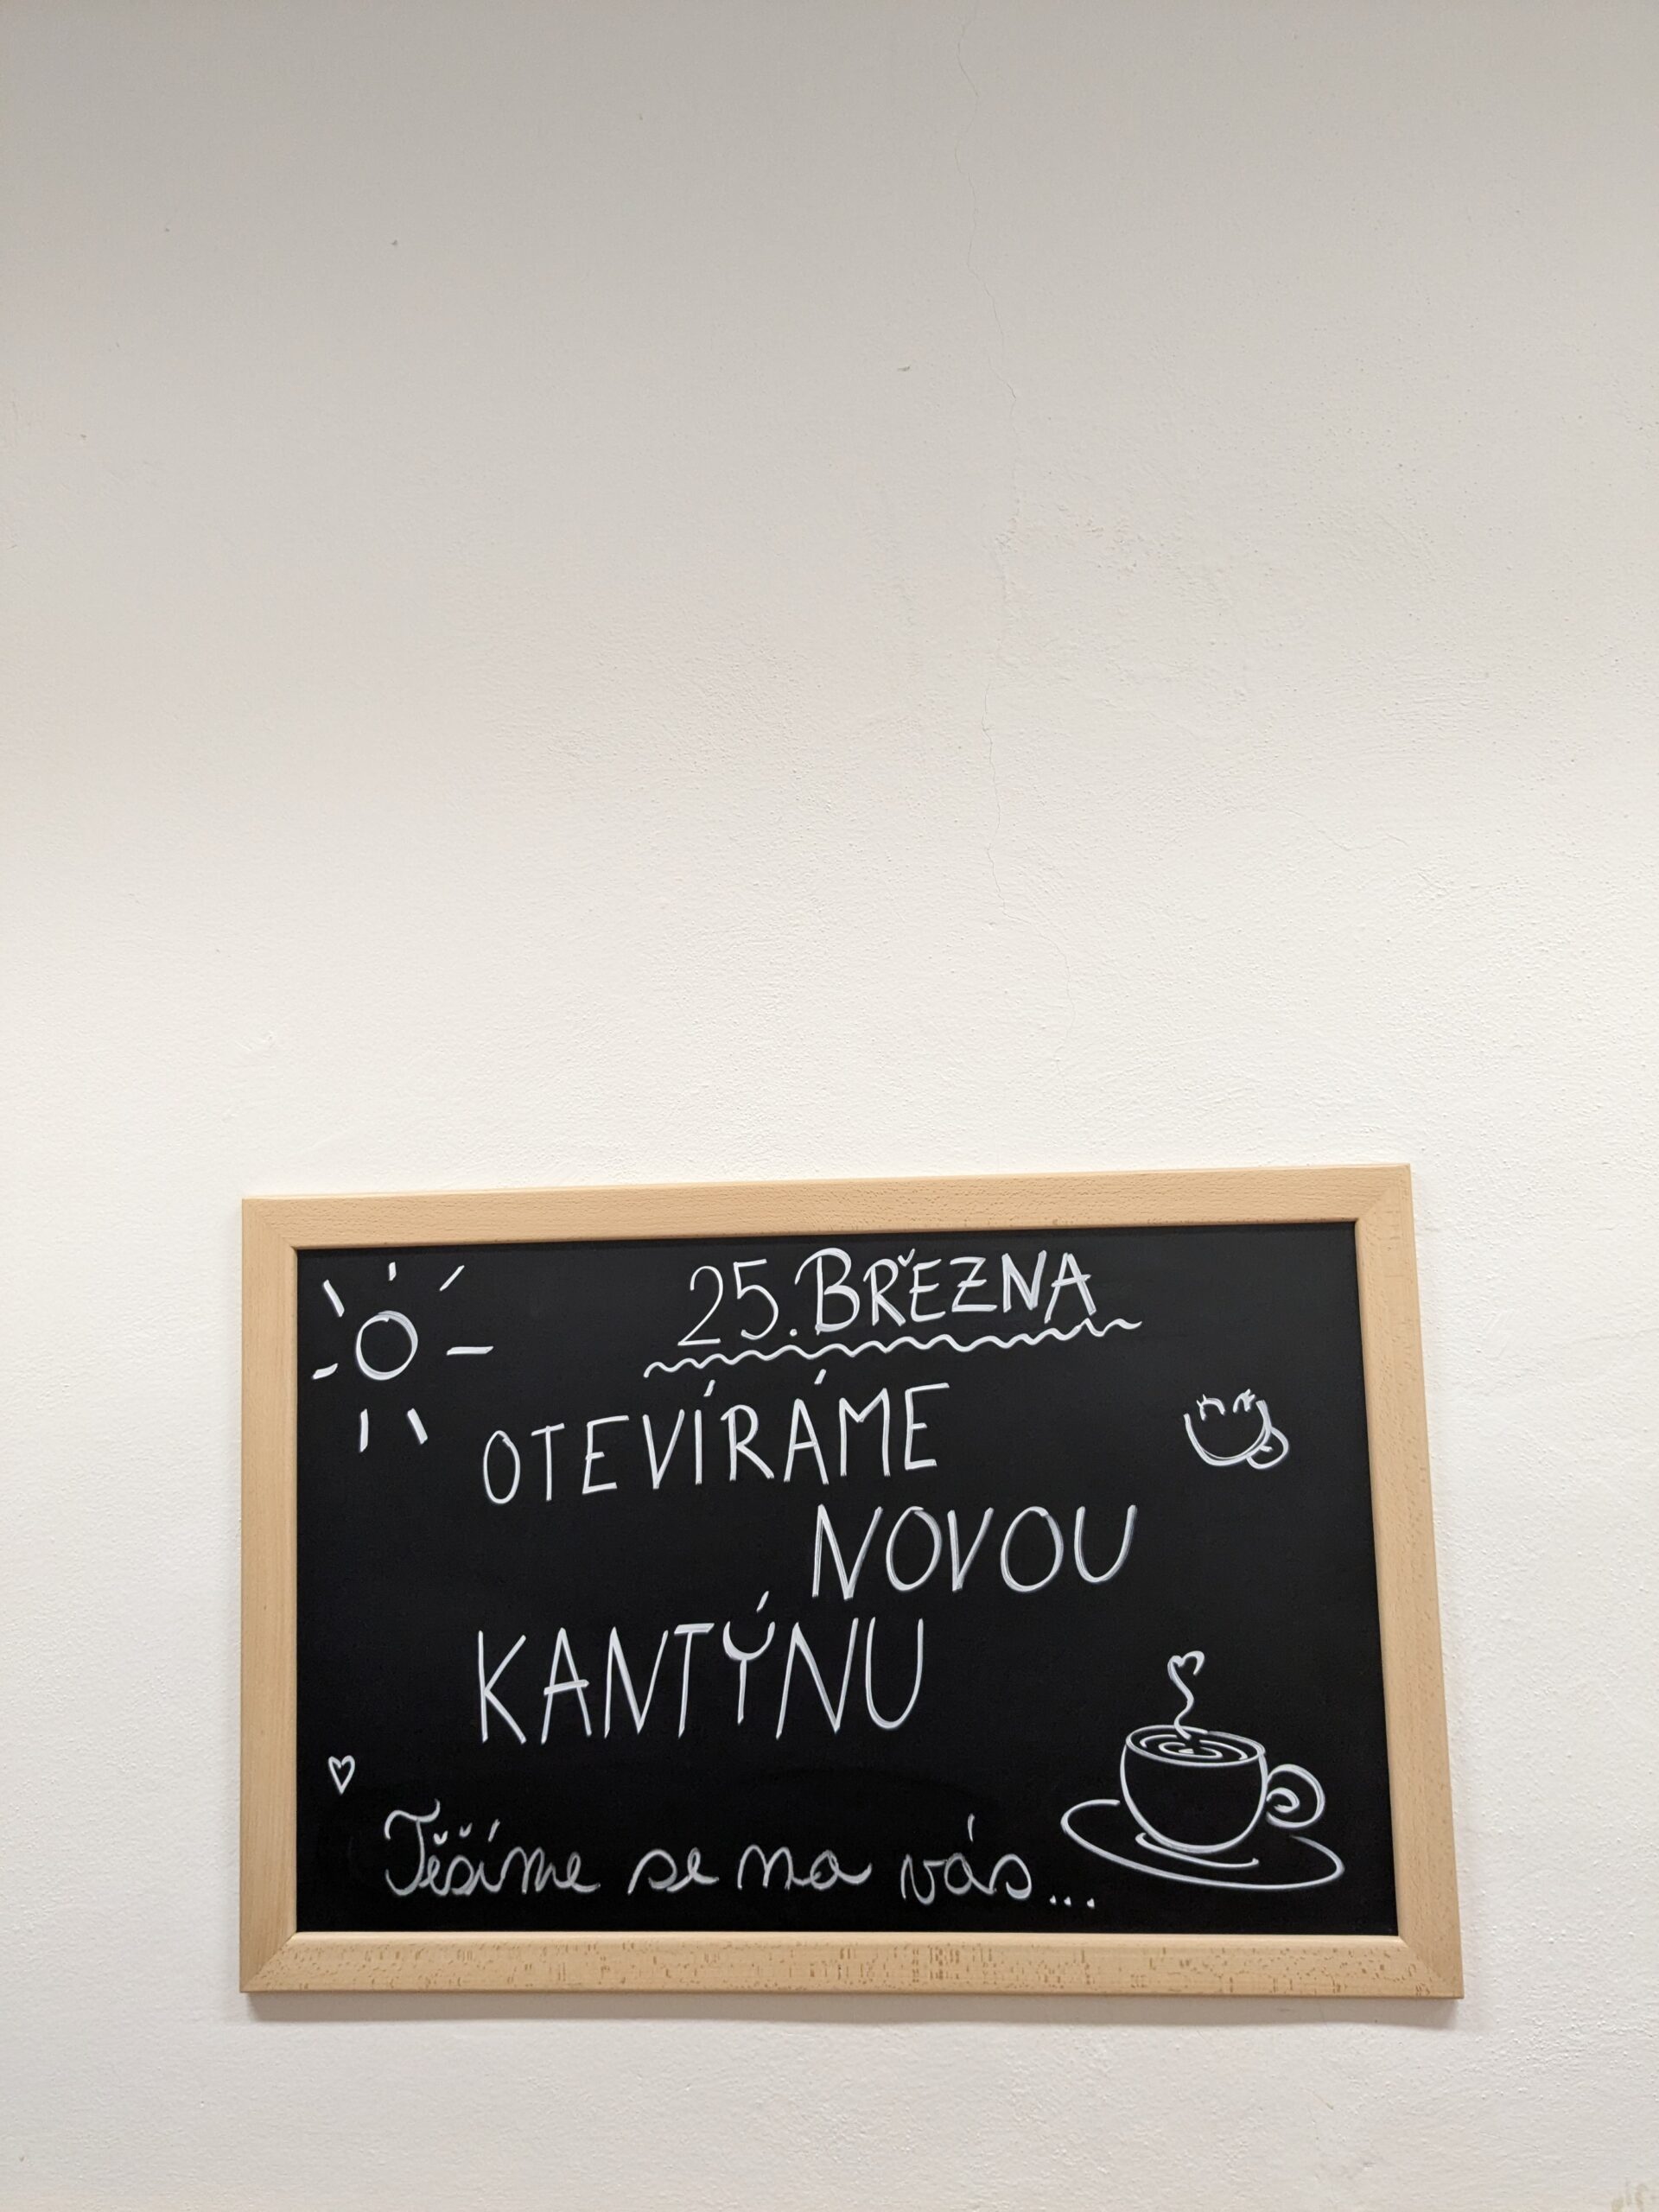 25. BŘEZNA
OTEVÍRÁME
NOVOU
KANTÝNU
Těšíme se na vás...